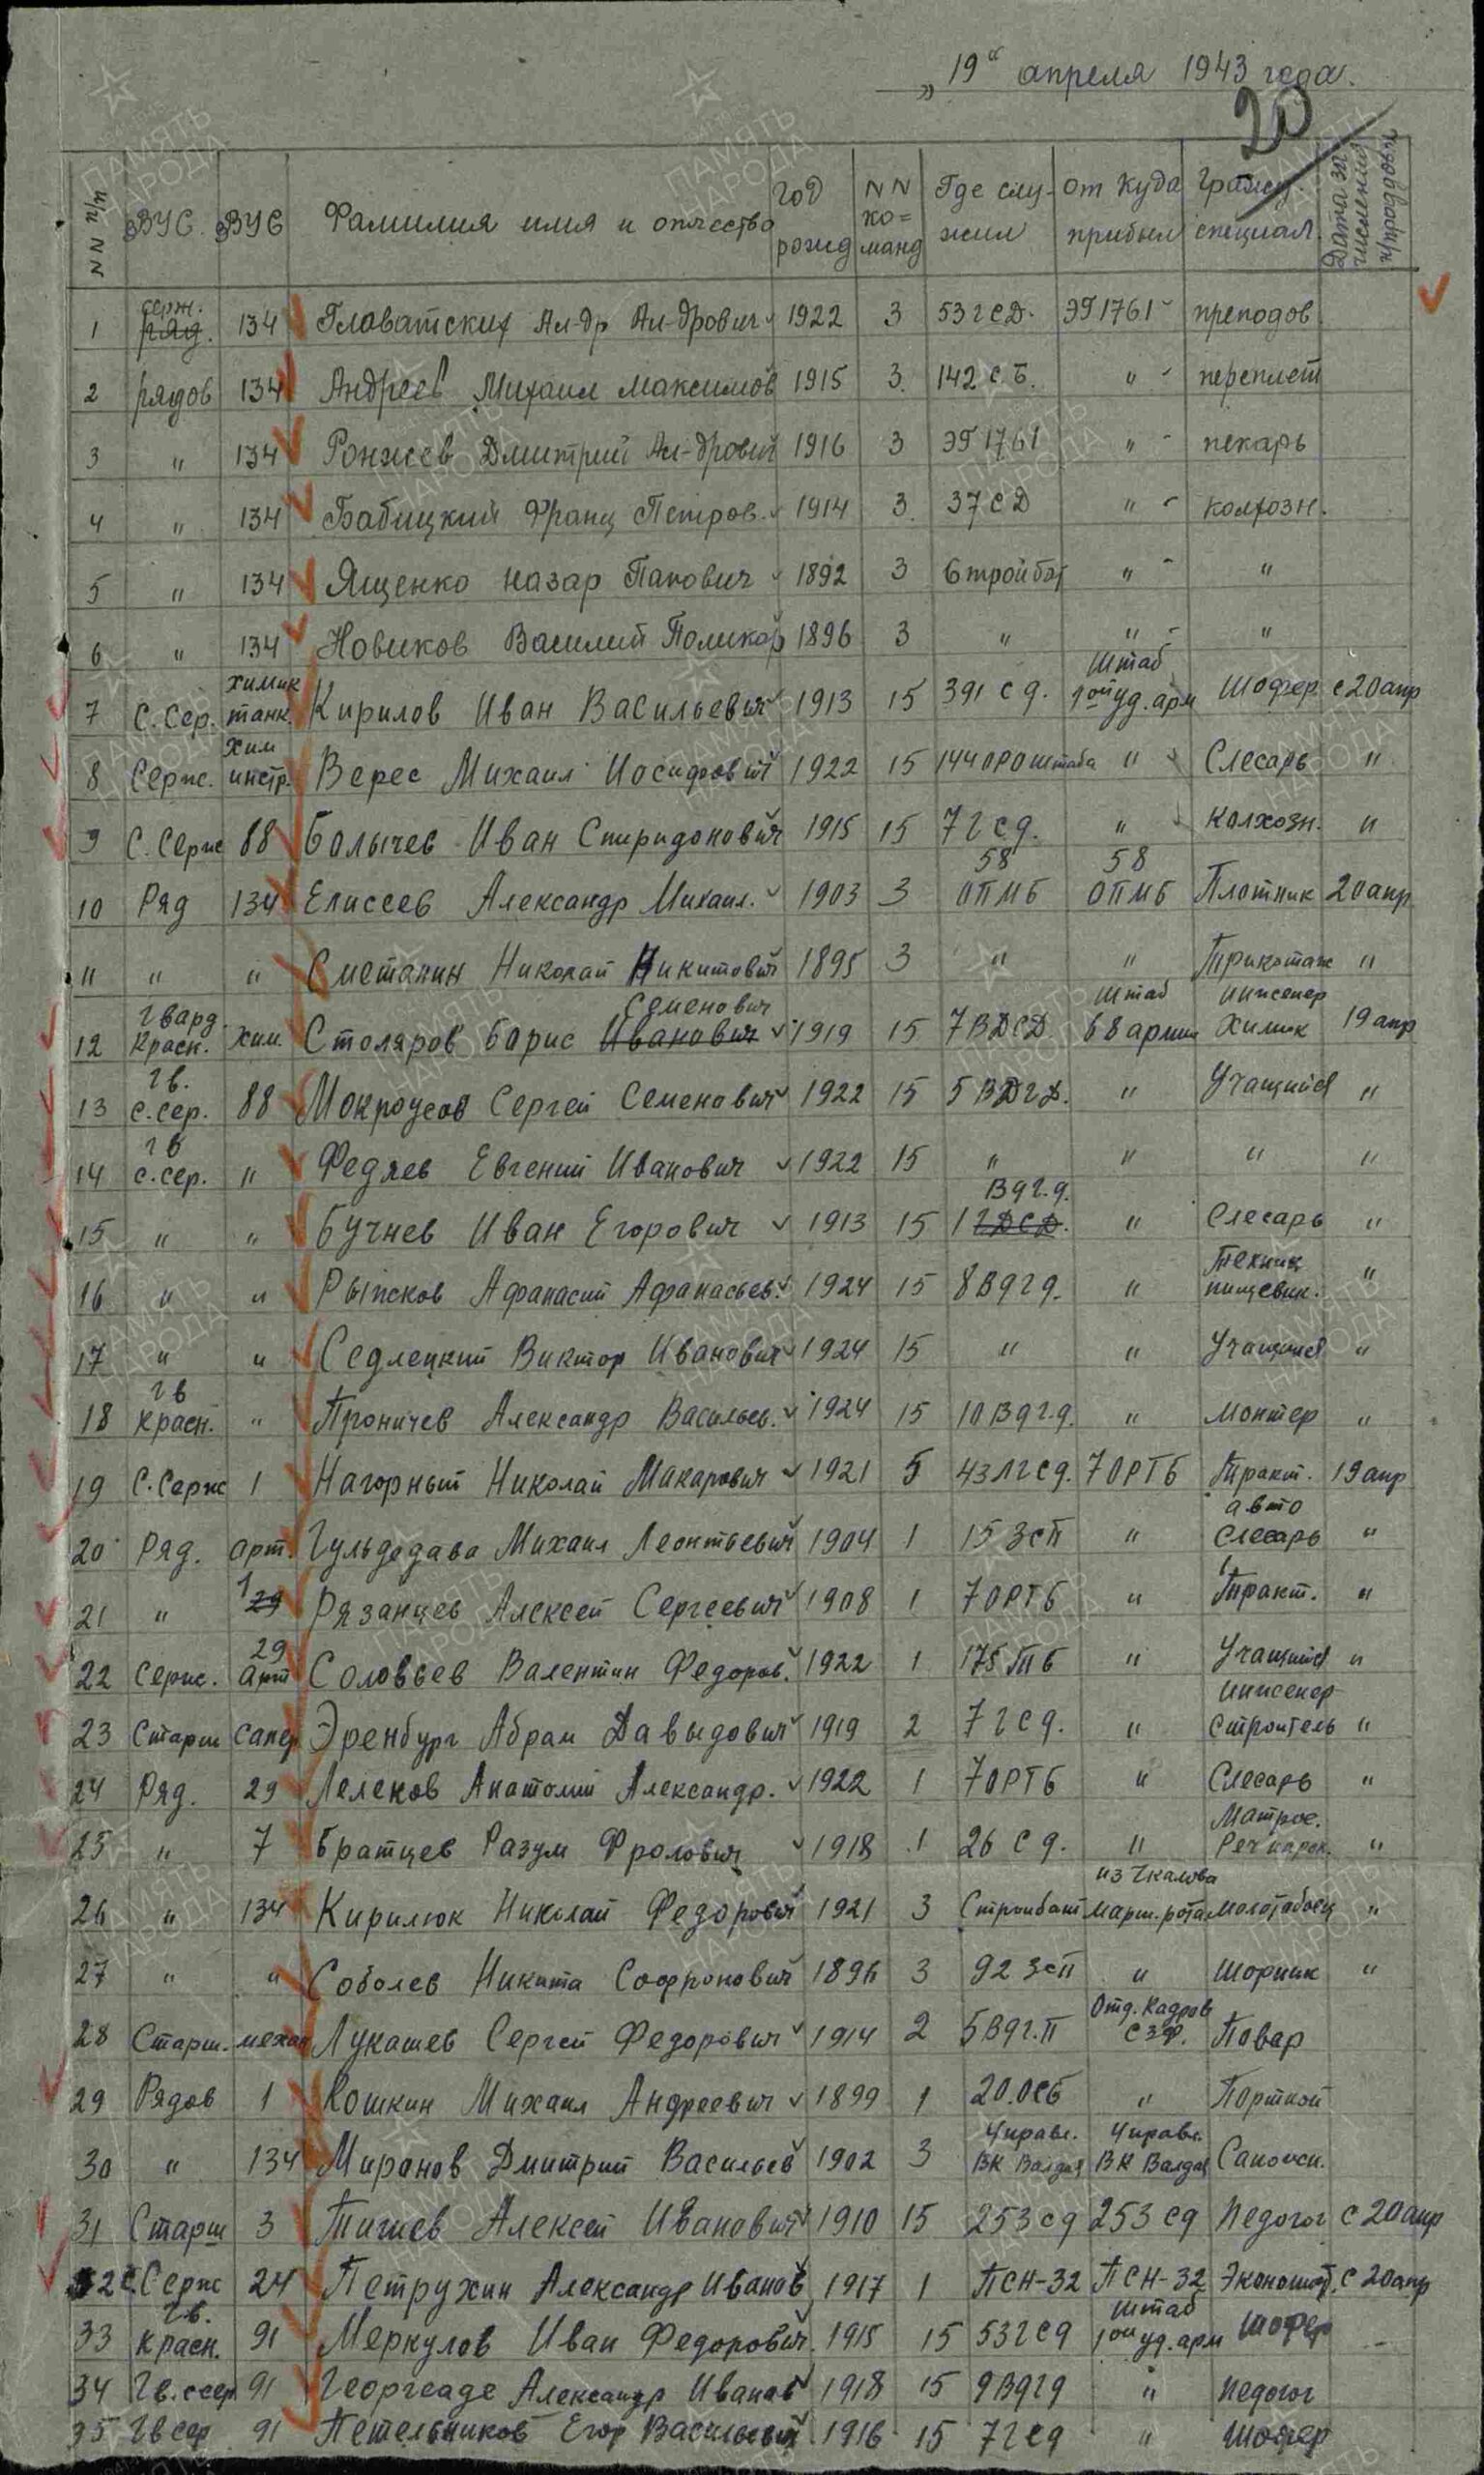 „19" апреля 1943 года.
20
NN п/п ВУС. ВУС Фамилия имя и отчество год рожд NN команд Где служил От куда прибыл Гражд. специал. Дата зачисления н/продов.
1 серж. ряд. 134 Главатских Ал-др Ал-дрович 1922 3 53 гсд. ЭГ 1761 преподов
2 рядов 134 Андреев Михаил Максимов 1915 3 142 с.б. " переплет
3 " 134 Ронжев Дмитрий Ал-дрович 1916 3 ЭГ 1761 " пекарь
4 " 134 Бабицкий Франц Петров. 1914 3 37 сд " колхозн.
5 " 134 Ященко Назар Панович 1892 3 Стройбат " "
6 " 134 Новиков Василий Поликар 1896 3 " " "
7 С. Сер. химик танк. Кирилов Иван Васильевич 1913 15 391 сд. Штаб 1ой уд. арм Шофер с 20 апр
8 Серж. хим инстр. Верес Михаил Иосифович 1922 15 144 оро штаба " Слесарь "
9 С. Серж 88 Болычев Иван Спиридонович 1915 15 7 гсд. " Колхозн. "
10 Ряд 134 Елисеев Александр Михаил. 1903 3 58 ОПМБ 58 ОПМБ Плотник 20 апр
11 " " Сметанин Николай Никитович 1895 3 " " Трикотаж "
12 гвард. Красн. хим. Столяров Борис Иванович Семенович 1919 15 7 ВДСД Штаб 68 армии инженер Химик 19 апр
13 гв. с. сер. 88 Мокроусов Сергей Семенович 1922 15 5 ВДгД. " Учащийся "
14 гв с. сер. " Федяев Евгений Иванович 1922 15 " " " "
15 " " Бучнев Иван Егорович 1913 15 1 гДСД. Вдг.д. " Слесарь "
16 " " Рыжков Афанасий Афанасьев. 1924 15 8 Вдгд. " Техник пищевик. "
17 " " Седлецкий Виктор Иванович 1924 15 " " Учащийся "
18 гв красн. " Проничев Александр Васильев. 1924 15 10 Вдг.д. " Монтер "
19 С. Серж 1 Нагорный Николай Макарович 1921 5 43 Лгсд. 7 ОРТБ Тракт. 19 апр
20 Ряд. арт. Гульдедава Михаил Леонтьевич 1904 1 15 зсп " авто Слесарь "
21 " 29 1 Рязанцев Алексей Сергеевич 1908 1 7 ОРТБ " Тракт. "
22 Серж. 29 Арт Соловьев Валентин Федоров. 1922 1 175 ТБ " Учащийся "
23 Старш Сапер Эренбург Абрам Давыдович 1919 2 7 гсд. " инженер Строитель "
24 Ряд. 29 Лелеков Анатолий Александр. 1922 1 7 ОРТБ " Слесарь "
25 " 7 Братцев Разум Фролович 1918 1 26 сд. " Матрос. Реч парох. "
26 " 134 Кирилюк Николай Федорович 1921 3 Стройбат из Чкалова марш. рота молотобоец "
27 " " Соболев Никита Софронович 1896 3 92 зсп " Шорник "
28 Старш. механ Лукашев Сергей Федорович 1914 2 5 Вдг.п Отд. Кадров СЗФ. Повар
29 Рядов 1 Кошкин Михаил Андреевич 1899 1 20. осб " Портной
30 " 134 Миронов Дмитрий Васильев 1902 3 Управл. ВК Валдай Управл. ВК Валдай Сапожн.
31 Старш 3 Тигиев Алексей Иванович 1910 15 253 сд 253 сд Педогог с 20 апр
32 С. Серж 24 Петрухин Александр Иванов 1917 1 ПСН-32 ПСН-32 Экономист с 20 апр
33 Гв. красн. 91 Меркулов Иван Федорович 1915 15 53 гсд Штаб 1ой уд. арм Шофер
34 Гв. ссер 91 Георгеаде Александр Иванов 1918 15 9 Вдгд " Педогог
35 Гв сер 91 Петельников Егор Васильевич 1916 15 7 гсд " Шофер